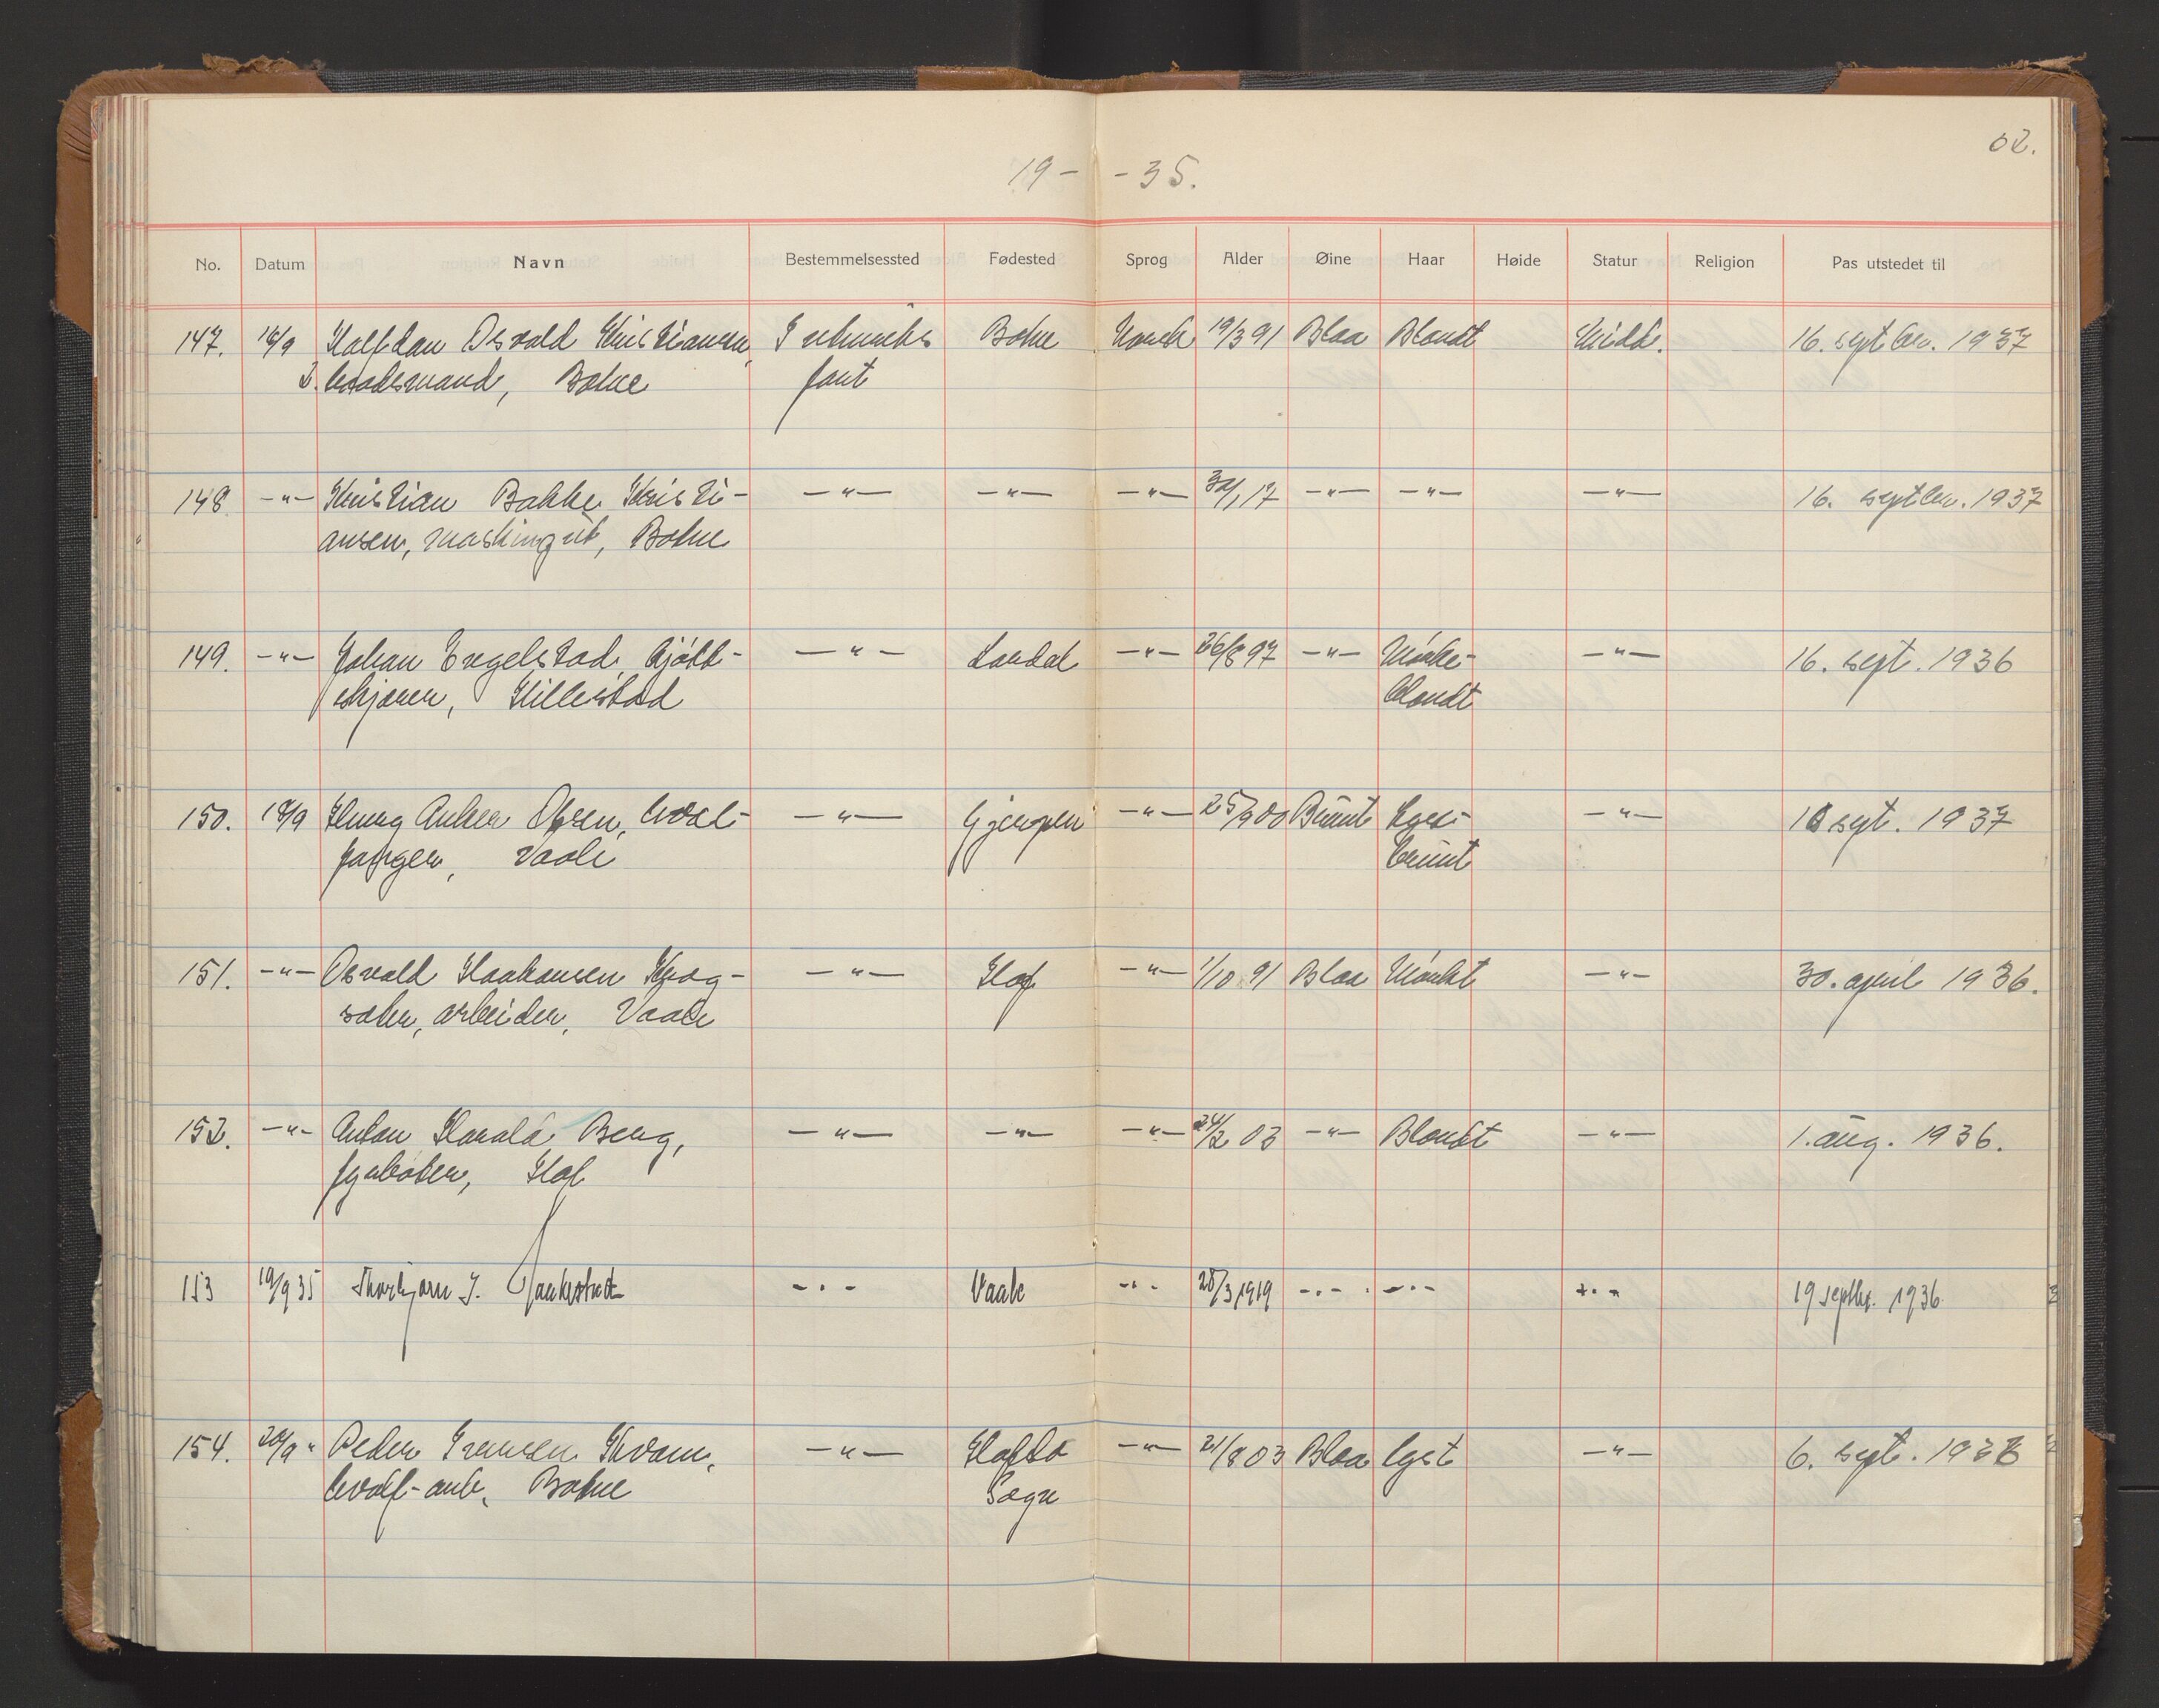 02.
19- -35.
No. Datum Navn Bestemmelsessted Fødested Sprog Alder Øine Haar Høide Statur Religion Pas utstedet til
147. 16/9 Halfdan Osvald Kristiansen, Botne Norsk 19/3 91 Blaa Blondt Midd. 16. septbr. 1937
2. baadsmand, Botne fant
148. -"- Kristian Bakke Kristi- -"- -"- -"- 17 -"- -"- -"- 16. septbr. 1937
ansen, maskingut, Botne
149. -"- Johan Engelstad, kjøtt- -"- Lardal -"- 26/8 97 -"- Mørke- -"- 16. sept. 1936
skjærer, Hillestad blondt
150. 18/9 Anker Olsen, hval- -"- Gjerpen -"- 25/9 00 Brunt Lyse- -"- sept. 1937
fanger, Vaale brunt
151. -"- Osvald Haakonsen Skog- -"- Hof -"- 1/10 91 Blaa Mørkt -"- 30. april 1936.
arbeider, Vaale
152. -"- Anton Harald Berg, -"- -"- -"- 24/2 03 -"- Blondt -"- 1. aug. 1936.
fyrbøter, Hof
153 19/9 35 Thorbjørn J. -"- Vaale -"- 28/3 1919 -"- -"- -"- 19 septbr. 1936
154. 20/9 " Peder Iversen Kvam, -"- Hafslo -"- 21/8 03 Blaa lyst -"- 6. sept. 193
hvalf-arb., Botne Sogn